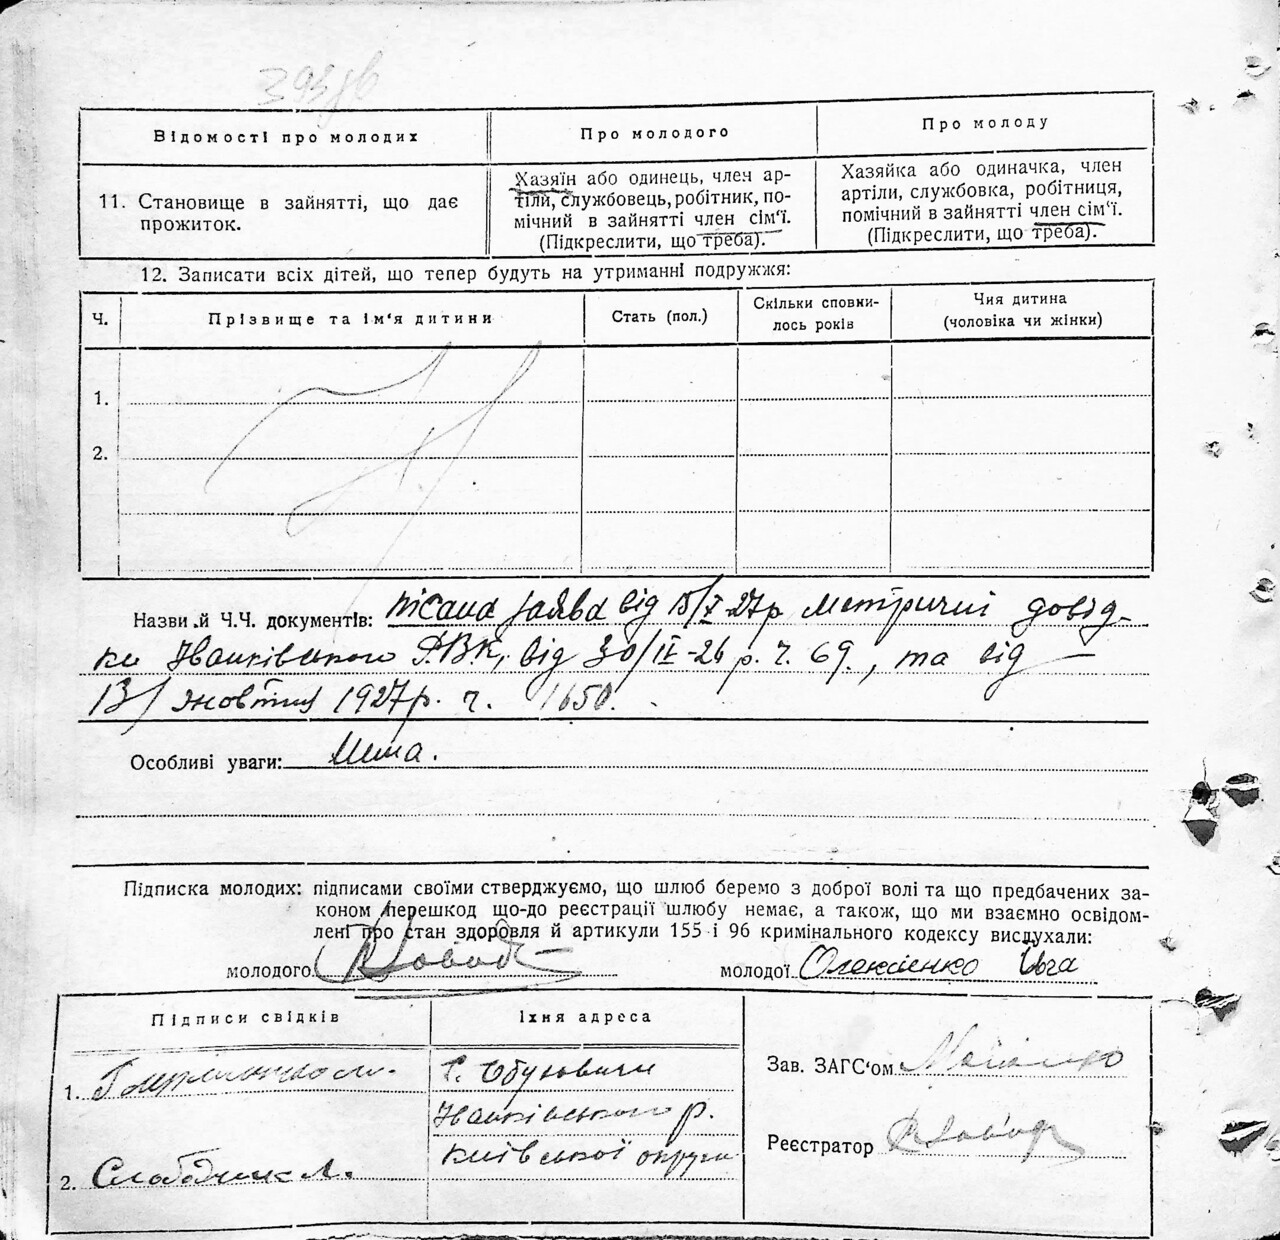 Відомості про молодих
Про молодого
Про молоду
11. Становище в зайнятті, що дає
прожиток.
Хазяїн або одинець, член ар-
тіли, службовець, робітник, по-
мічний в зайнятті член сім'ї.
(Підкреслити, що треба).
Хазяйка або одиначка, член
артіли, службовка, робітниця,
помічний в зайнятті член сім'ї.
(Підкреслити, що треба).
12. Записати всіх дітей, що тепер будуть на утриманні подружжя:
Ч.
Прізвище та ім'я дитини
Стать (пол.)
Скільки сповни-
лось років
Чия дитина
(чоловіка чи жінки)
1.
2.
Назви й Ч.Ч. документів: пісана заява від 15/X-27р метричні довід-
ки Іванківського Р.В.К, від 30/IX-26 р. ч. 69, та від
13/ жовтня 1927 р. ч. 1650.
Особливі уваги: Нема.
Підписка молодих: підписами своїми стверджуємо, що шлюб беремо з доброї волі та що предбачених за-
коном перешкод що-до реєстрації шлюбу немає, а також, що ми взаємно освідом-
лені про стан здоровля й артикули 155 і 96 кримінального кодексу вислухали:
молодого
молодої Олексієнко
Підписи свідків
Їхня адреса
1.
с. Обуховичи
Іванківського р.
Київської округи
2. Слободчик Л.
Зав. ЗАГС'ом
Реєстратор